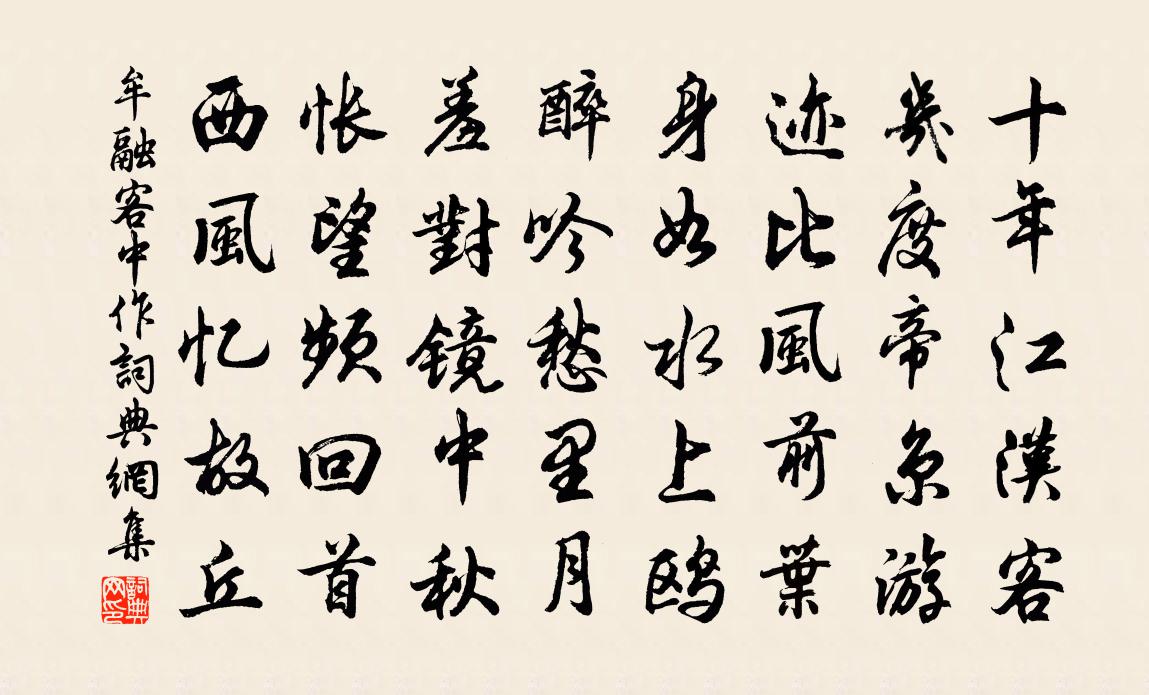 十年江漢客
幾度帝京游
迹比風前葉
身如水上鸥
醉吟愁里月
羞對鏡中秋
悵望頻回首
西風忆故丘
牟融客中作詞典網集
詞典网印